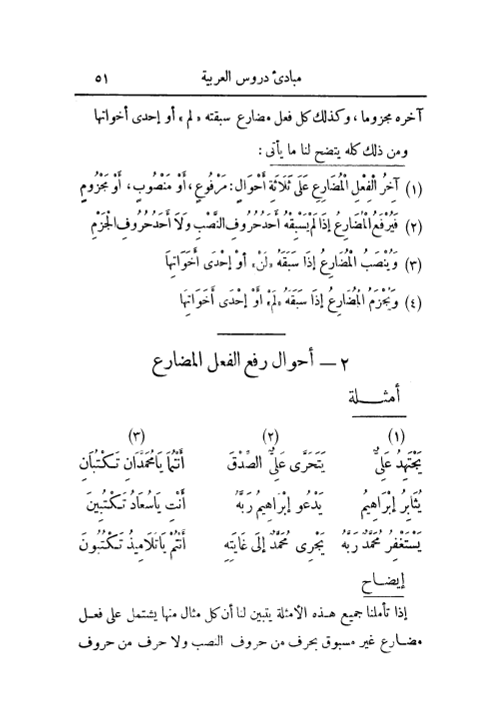 مبادئ دروس العربية ٥١
آخره مجزوما، وكذلك كل فعل مضارع سبقته «لم» أو إحدى أخواتها
ومن ذلك كله يتضح لنا ما يأتى:
(١) آخِرُ الْفِعْلِ الْمُضَارِعِ عَلَى ثَلَاثَةِ أَحْوَالٍ: مَرْفُوعٍ، أَوْ مَنْصُوبٍ، أَوْ مَجْزُومٍ
(٢) فَيُرْفَعُ الْمُضَارِعُ إِذَا لَمْ يَسْبِقْهُ أَحَدُ حُرُوفِ النَّصْبِ وَلَا أَحَدُ حُرُوفِ الْجَزْمِ
(٣) وَيُنْصَبُ الْمُضَارِعُ إِذَا سَبَقَهُ «لَنْ» أَوْ إِحْدَى أَخَوَاتِهَا
(٤) وَيُجْزَمُ الْمُضَارِعُ إِذَا سَبَقَهُ «لَمْ» أَوْ إِحْدَى أَخَوَاتِهَا
٢ — أحوال رفع الفعل المضارع
أمثلة
(١) (٢) (٣)
يَجْتَهِدُ عَلِىٌّ يَتَحَرَّى عَلِىٌّ الصِّدْقَ أَنْتُمَا يَا مُحَمَّدَانِ تَكْتُبَانِ
يُثَابِرُ إِبْرَاهِيمُ يَدْعُو إِبْرَاهِيمُ رَبَّهُ أَنْتِ يَا سُعَادُ تَكْتُبِينَ
يَسْتَغْفِرُ مُحَمَّدٌ رَبَّهُ يَجْرِى مُحَمَّدٌ إِلَى غَايَتِهِ أَنْتُمْ يَا تَلَامِيذُ تَكْتُبُونَ
إيضاح
إذا تأملنا جميع هذه الأمثلة يتبين لنا أن كل مثال منها يشتمل على فعل
مضارع غير مسبوق بحرف من حروف النصب ولا حرف من حروف